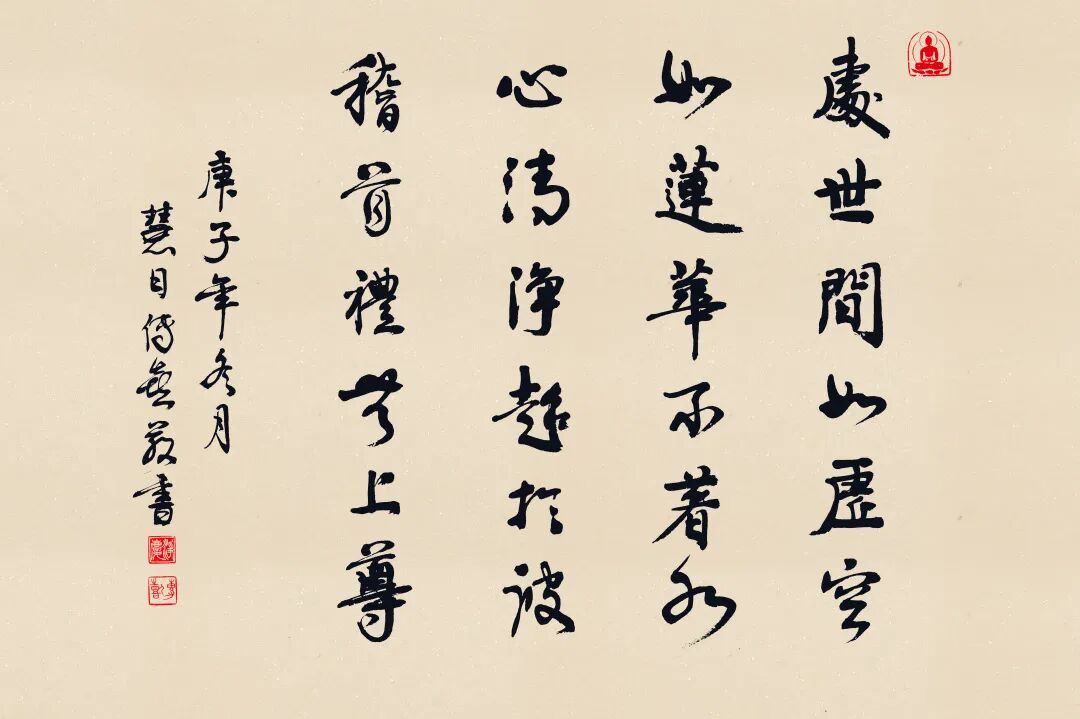 處世間如虛空
如蓮華不著水
心清淨超於彼
稽首禮無上尊
庚子年冬月
慧目傳喜敬書